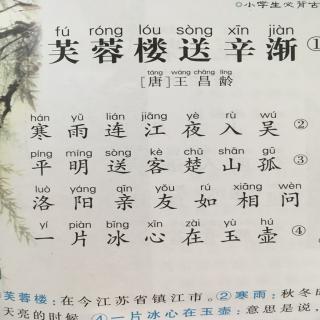 ◎小学生必背古
fú róng lóu sòng xīn jiàn
芙蓉楼送辛渐①
táng wáng chāng líng
[唐]王昌龄
hán yǔ lián jiāng yè rù wú
寒雨连江夜入吴②
píng míng sòng kè chǔ shān gū
平明送客楚山孤③
luò yáng qīn yǒu rú xiāng wèn
洛阳亲友如相问
yí piàn bīng xīn zài yù hú
一片冰心在玉壶④
芙蓉楼:在今江苏省镇江市。②寒雨:秋冬
天亮的时候 ④一片冰心在玉壶:意思是说,